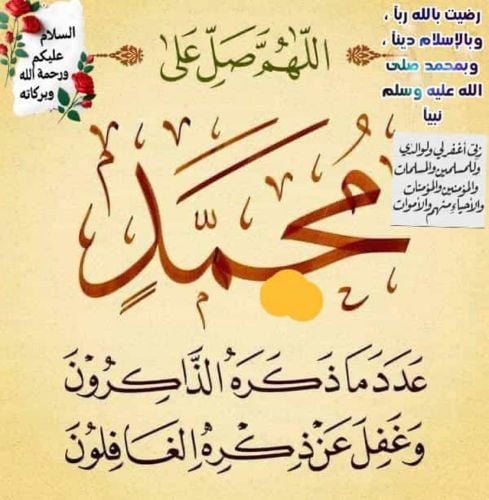 السلام
عليكم
ورحمة الله
وبركاته
رضيت بالله رباً ،
وبالإسلام ديناً ،
وبمحمد صلى
الله عليه وسلم
نبياً
ربي أغفر لي ولوالدي
وللمسلمين والمسلمات
والمؤمنين والمؤمنات
والأحياء منهم والأموات
اللَّهُمَّ صَلِّ عَلَى
مُحَمَّدٍ
عَدَدَ مَا ذَكَرَهُ الذَّاكِرُونَ
وَغَفِلَ عَنْ ذِكْرِهِ الغَافِلُونَ